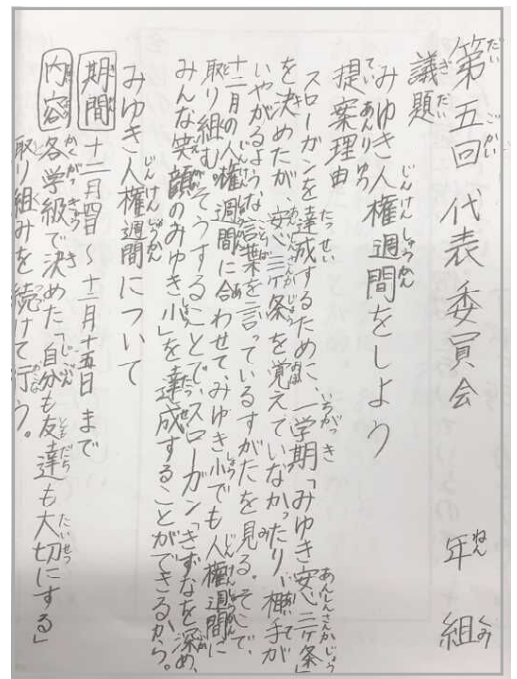 第五回 代表委員会 年 組
議題
みゆき人権週間をしよう
提案理由
スローガンを達成するために、一学期「みゆき安心三ヶ条」
を決めたが、安心三ヶ条を覚えていなかったり、相手が
いやがるような言葉を言っているすがたを見る。そこで、
十二月の人権週間に合わせて、みゆき小でも人権週間に
取り組む。そうすることで、スローガン「きずなを深め、
みんな笑顔のみゆき小」を達成することができるから。
みゆき人権週間について
期間 十二月四日～十二月十五日まで
内容 各学級で決めた「自分も友達も大切にする」
取り組みを続けて行う。